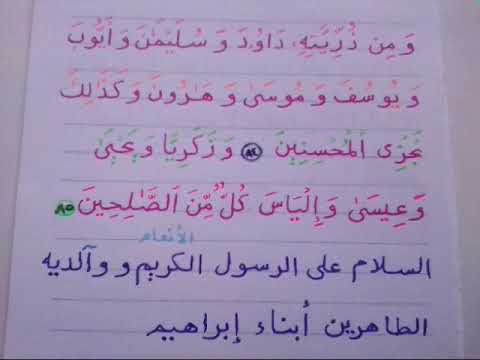 وَمِن ذُرِّيَّتِهِۦ دَاوُۥدَ وَ سُلَيْمَٰنَ وَ أَيُّوبَ
وَ يُوسُفَ وَ مُوسَىٰ وَ هَٰرُونَ وَ كَذَٰلِكَ
نَجْزِى ٱلْمُحْسِنِينَ ٨٤ وَ زَكَرِيَّا وَ يَحْيَىٰ
وَ عِيسَىٰ وَ إِلْيَاسَ كُلٌّ مِّنَ ٱلصَّٰلِحِينَ ٨٥
الأنعام
السلام على الرسول الكريم و وآلديه
الطاهرين أبناء إبراهيم